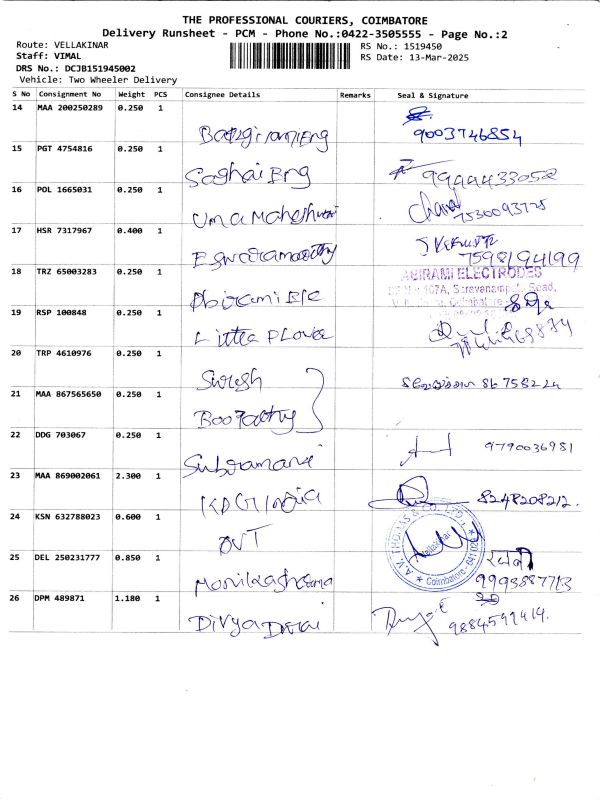 THE PROFESSIONAL COURIERS, COIMBATORE
Delivery Runsheet - PCM - Phone No.:0422-3505555 - Page No.:2
Route: VELLAKINAR
RS No.: 1519450
Staff: VIMAL
RS Date: 13-Mar-2025
DRS No.: DCJB151945002
Vehicle: Two Wheeler Delivery
S No Consignment No Weight PCS Consignee Details Remarks Seal & Signature
14 MAA 200250289 0.250 1
9003746854
15 PGT 4754816 0.250 1
Saghai Eng 9944433052
16 POL 1665031 0.250 1
Uma Maheshwari
17 HSR 7317967 0.400 1
Eswaramoorthy 7598194199
18 TRZ 65003283 0.250 1
ABIRAMI ELECTRODES
107A, Saravanampatti Road,
Coimbatore
Abirami Ele
19 RSP 100848 0.250 1
Little Flower
20 TRP 4610976 0.250 1
Suresh
21 MAA 867565650 0.250 1
Boopathy
22 DDG 703067 0.250 1
Subramani 9790036981
23 MAA 869002061 2.300 1
KDG India 8248208212.
24 KSN 632788023 0.600 1
A.V. THOMAS & CO. LTD.
Vellakinar
Coimbatore- 641 029
25 DEL 250231777 0.850 1
9993887713
26 DPM 489871 1.180 1
Divya Desai 9884591414.